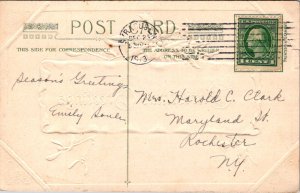 POST CARD.
THIS SIDE FOR CORRESPONDENCE.
THE ADDRESS TO BE WRITTEN
ON THIS SIDE
DEC 23
Season's Greetings
Emily
Mrs. Harold C. Clark
Maryland St.
Rochester
NY.